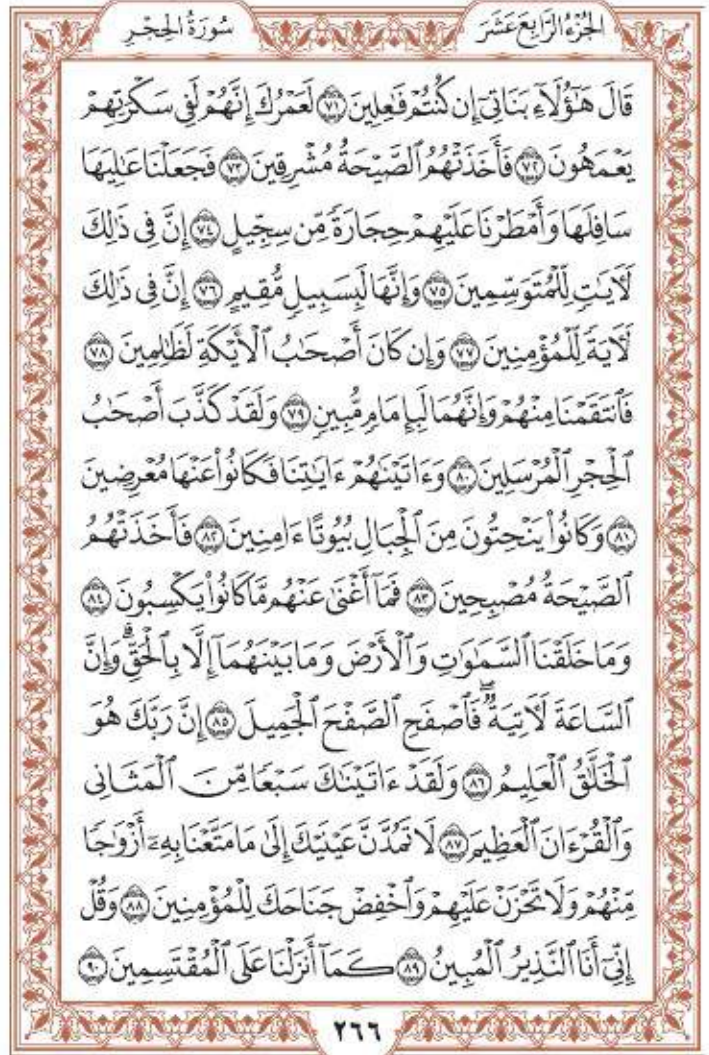 الجُزْءُ الرَّابِعَ عَشَرَ سُورَةُ الحِجْرِ
قَالَ هَٰٓؤُلَآءِ بَنَاتِيٓ إِن كُنتُمۡ فَٰعِلِينَ ٧١ لَعَمۡرُكَ إِنَّهُمۡ لَفِي سَكۡرَتِهِمۡ
يَعۡمَهُونَ ٧٢ فَأَخَذَتۡهُمُ ٱلصَّيۡحَةُ مُشۡرِقِينَ ٧٣ فَجَعَلۡنَا عَٰلِيَهَا
سَافِلَهَا وَأَمۡطَرۡنَا عَلَيۡهِمۡ حِجَارَةٗ مِّن سِجِّيلٍ ٧٤ إِنَّ فِي ذَٰلِكَ
لَأٓيَٰتٖ لِّلۡمُتَوَسِّمِينَ ٧٥ وَإِنَّهَا لَبِسَبِيلٖ مُّقِيمٍ ٧٦ إِنَّ فِي ذَٰلِكَ
لَأٓيَةٗ لِّلۡمُؤۡمِنِينَ ٧٧ وَإِن كَانَ أَصۡحَٰبُ ٱلۡأَيۡكَةِ لَظَٰلِمِينَ ٧٨
فَٱنتَقَمۡنَا مِنۡهُمۡ وَإِنَّهُمَا لَبِإِمَامٖ مُّبِينٖ ٧٩ وَلَقَدۡ كَذَّبَ أَصۡحَٰبُ
ٱلۡحِجۡرِ ٱلۡمُرۡسَلِينَ ٨٠ وَءَاتَيۡنَٰهُمۡ ءَايَٰتِنَا فَكَانُواْ عَنۡهَا مُعۡرِضِينَ
٨١ وَكَانُواْ يَنۡحِتُونَ مِنَ ٱلۡجِبَالِ بُيُوتًا ءَامِنِينَ ٨٢ فَأَخَذَتۡهُمُ
ٱلصَّيۡحَةُ مُصۡبِحِينَ ٨٣ فَمَآ أَغۡنَىٰ عَنۡهُم مَّا كَانُواْ يَكۡسِبُونَ ٨٤
وَمَا خَلَقۡنَا ٱلسَّمَٰوَٰتِ وَٱلۡأَرۡضَ وَمَا بَيۡنَهُمَآ إِلَّا بِٱلۡحَقِّۗ وَإِنَّ
ٱلسَّاعَةَ لَأٓتِيَةٞۖ فَٱصۡفَحِ ٱلصَّفۡحَ ٱلۡجَمِيلَ ٨٥ إِنَّ رَبَّكَ هُوَ
ٱلۡخَلَّٰقُ ٱلۡعَلِيمُ ٨٦ وَلَقَدۡ ءَاتَيۡنَٰكَ سَبۡعٗا مِّنَ ٱلۡمَثَانِي
وَٱلۡقُرۡءَانَ ٱلۡعَظِيمَ ٨٧ لَا تَمُدَّنَّ عَيۡنَيۡكَ إِلَىٰ مَا مَتَّعۡنَا بِهِۦٓ أَزۡوَٰجٗا
مِّنۡهُمۡ وَلَا تَحۡزَنۡ عَلَيۡهِمۡ وَٱخۡفِضۡ جَنَاحَكَ لِلۡمُؤۡمِنِينَ ٨٨ وَقُلۡ
إِنِّيٓ أَنَا ٱلنَّذِيرُ ٱلۡمُبِينُ ٨٩ كَمَآ أَنزَلۡنَا عَلَى ٱلۡمُقۡتَسِمِينَ ٩٠
٢٦٦